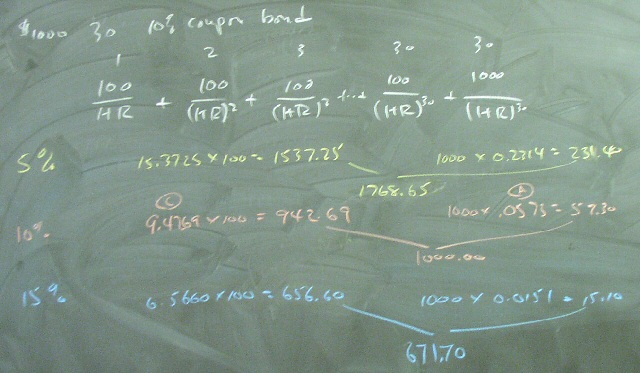 $1000 30 10% coupon bond
1 2 3 30 30
100/1+R + 100/(1+R)² + 100/(1+R)² + ... + 100/(1+R)³⁰ + 1000/(1+R)³⁰
5% 15.3725 x 100 = 1537.25 1000 x 0.2314 = 231.40
1768.65
C A
10% 9.4769 x 100 = 942.69 1000 x .0573 = 57.30
1000.00
15% 6.5660 x 100 = 656.60 1000 x 0.0151 = 15.10
671.70